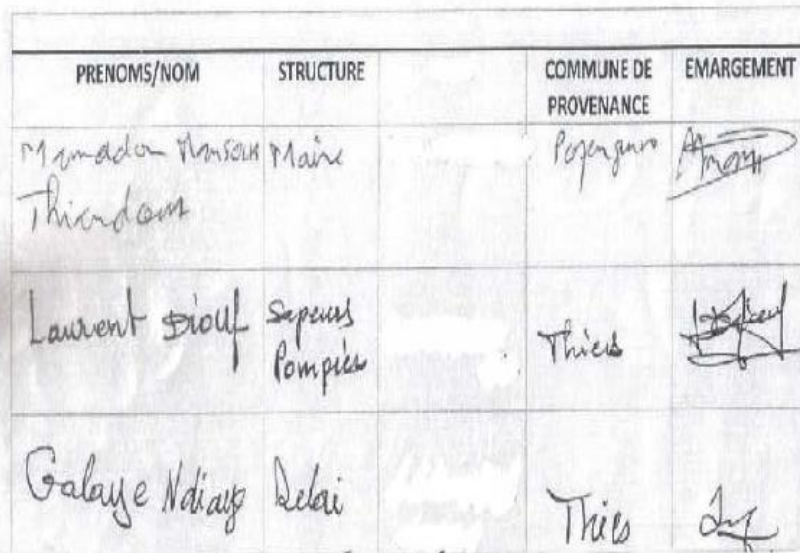 PRENOMS/NOM STRUCTURE COMMUNE DE PROVENANCE EMARGEMENT
Mamadou Mansour Maire
Laurent Diouf Sapeurs Pompiers Thiers
Galaye Ndiaye Thiès